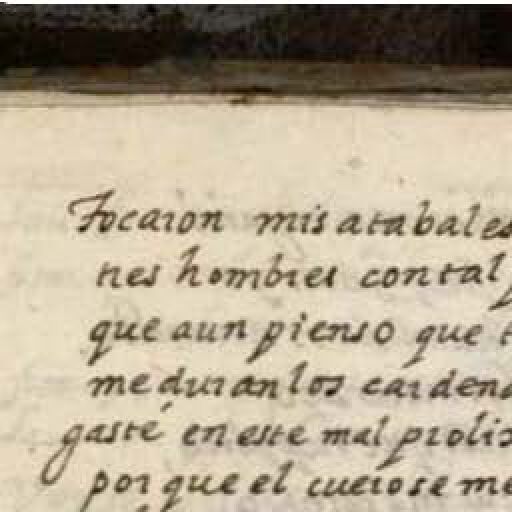 Tocaron mis atabales
tres hombres con tal
que aun pienso que
me duran los cardena
gasté en este mal prolix
por que el cuero se me